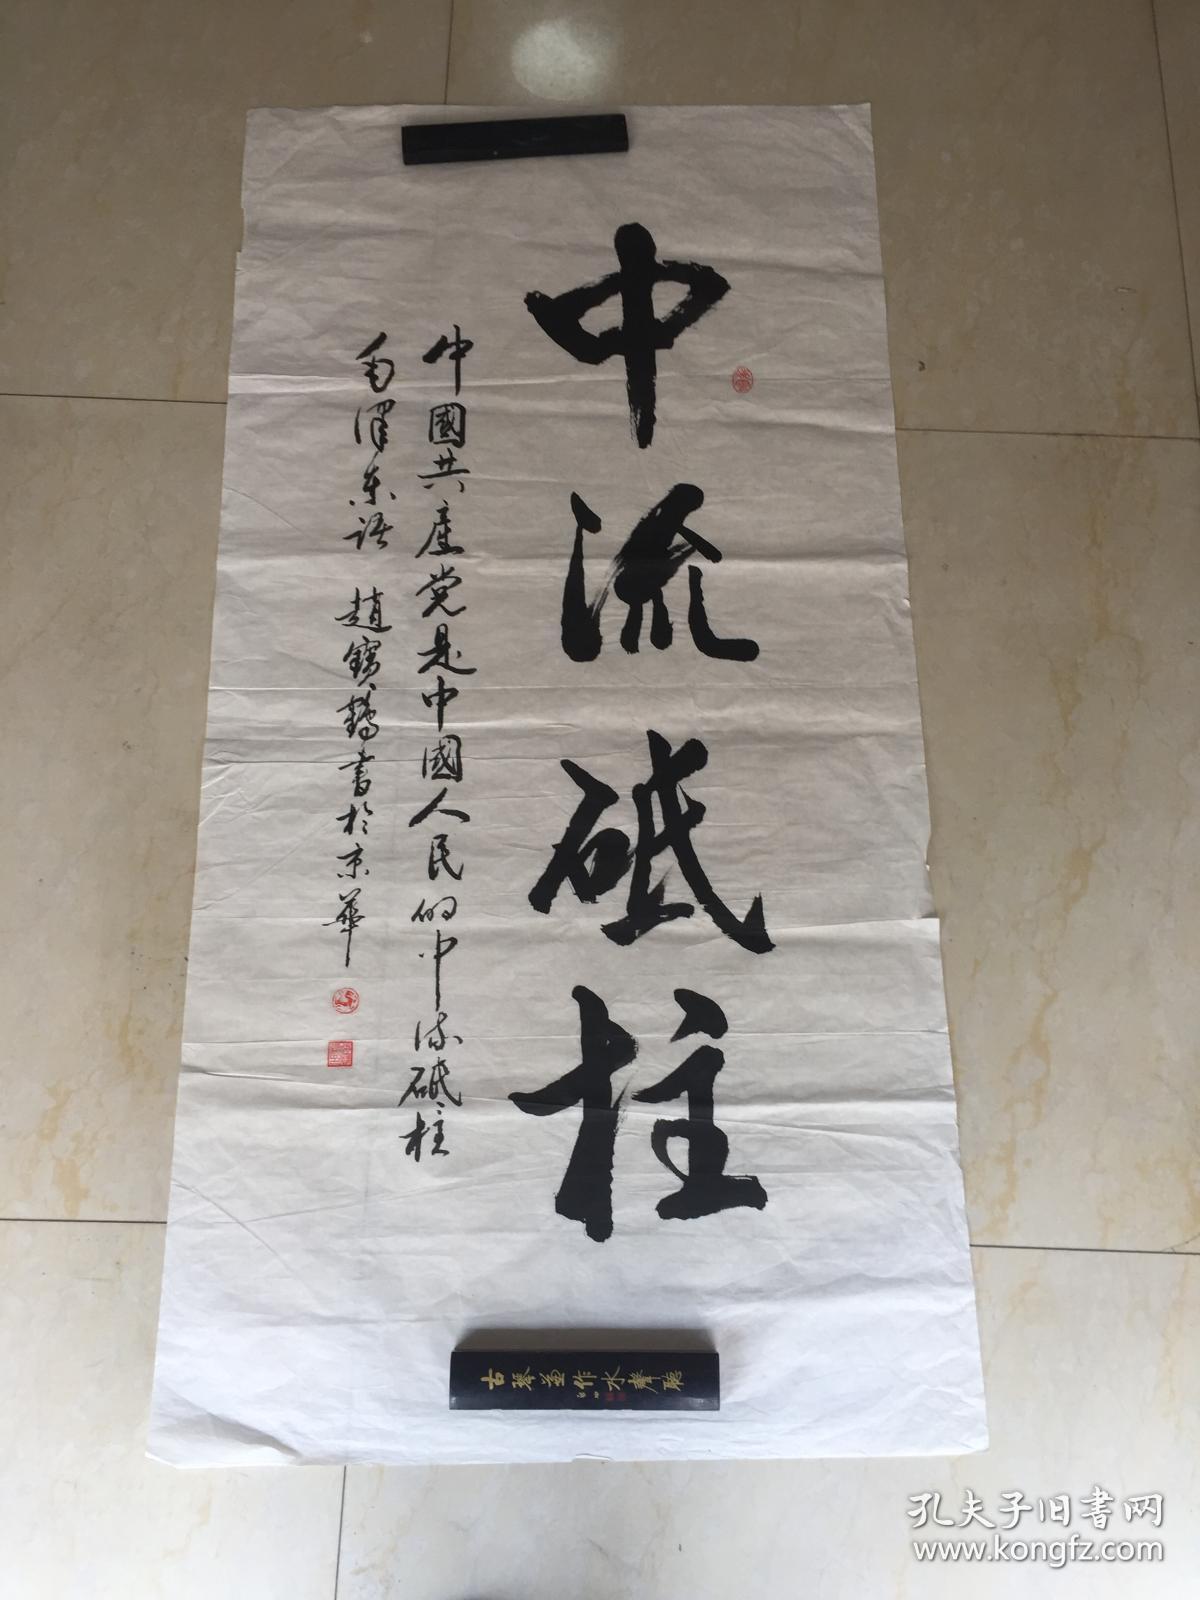 中流砥柱
中國共產党是中國人民的中流砥柱
毛澤东语 趙寶鶴書於京華
古琴並作水聲聽
孔夫子旧书网
www.kongfz.com